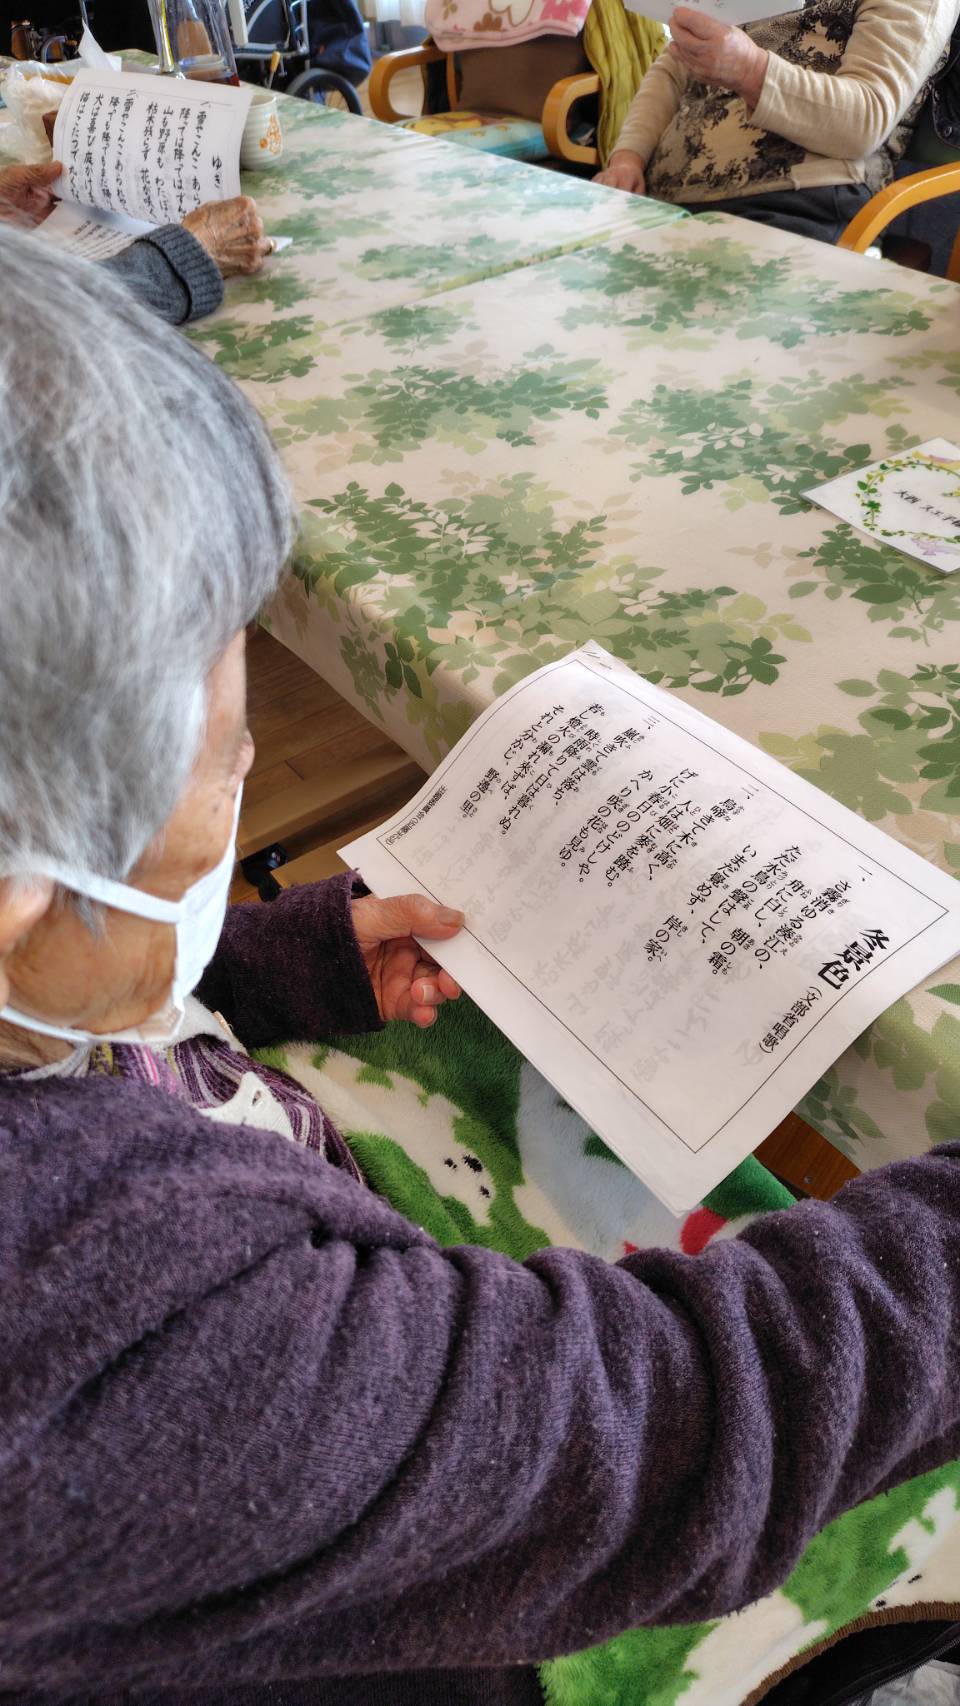 冬景色（文部省唱歌）
一、
さ霧消ゆる湊江の、
舟に白し、朝の霜。
ただ水鳥の聲はして、
いまだ覺めず、岸の家。
二、
烏啼きて木に高く、
人は畑に麥を踏む。
げに小春日ののどけしや。
かへり咲の花も見ゆ。
三、
嵐吹きて雲は落ち、
時雨降りて日は暮れぬ。
若し燈火の漏れ來ずば、
それと分かじ、野邊の里。
ゆき
一、
雪やこんこ あら
降っては降ってはずん
山も野原も わたぼ
枯木残らず 花が咲く
二、
雪やこんこ あられや
降っても降ってもまだ降
犬は喜び 庭かけま
猫はこたつで丸くな